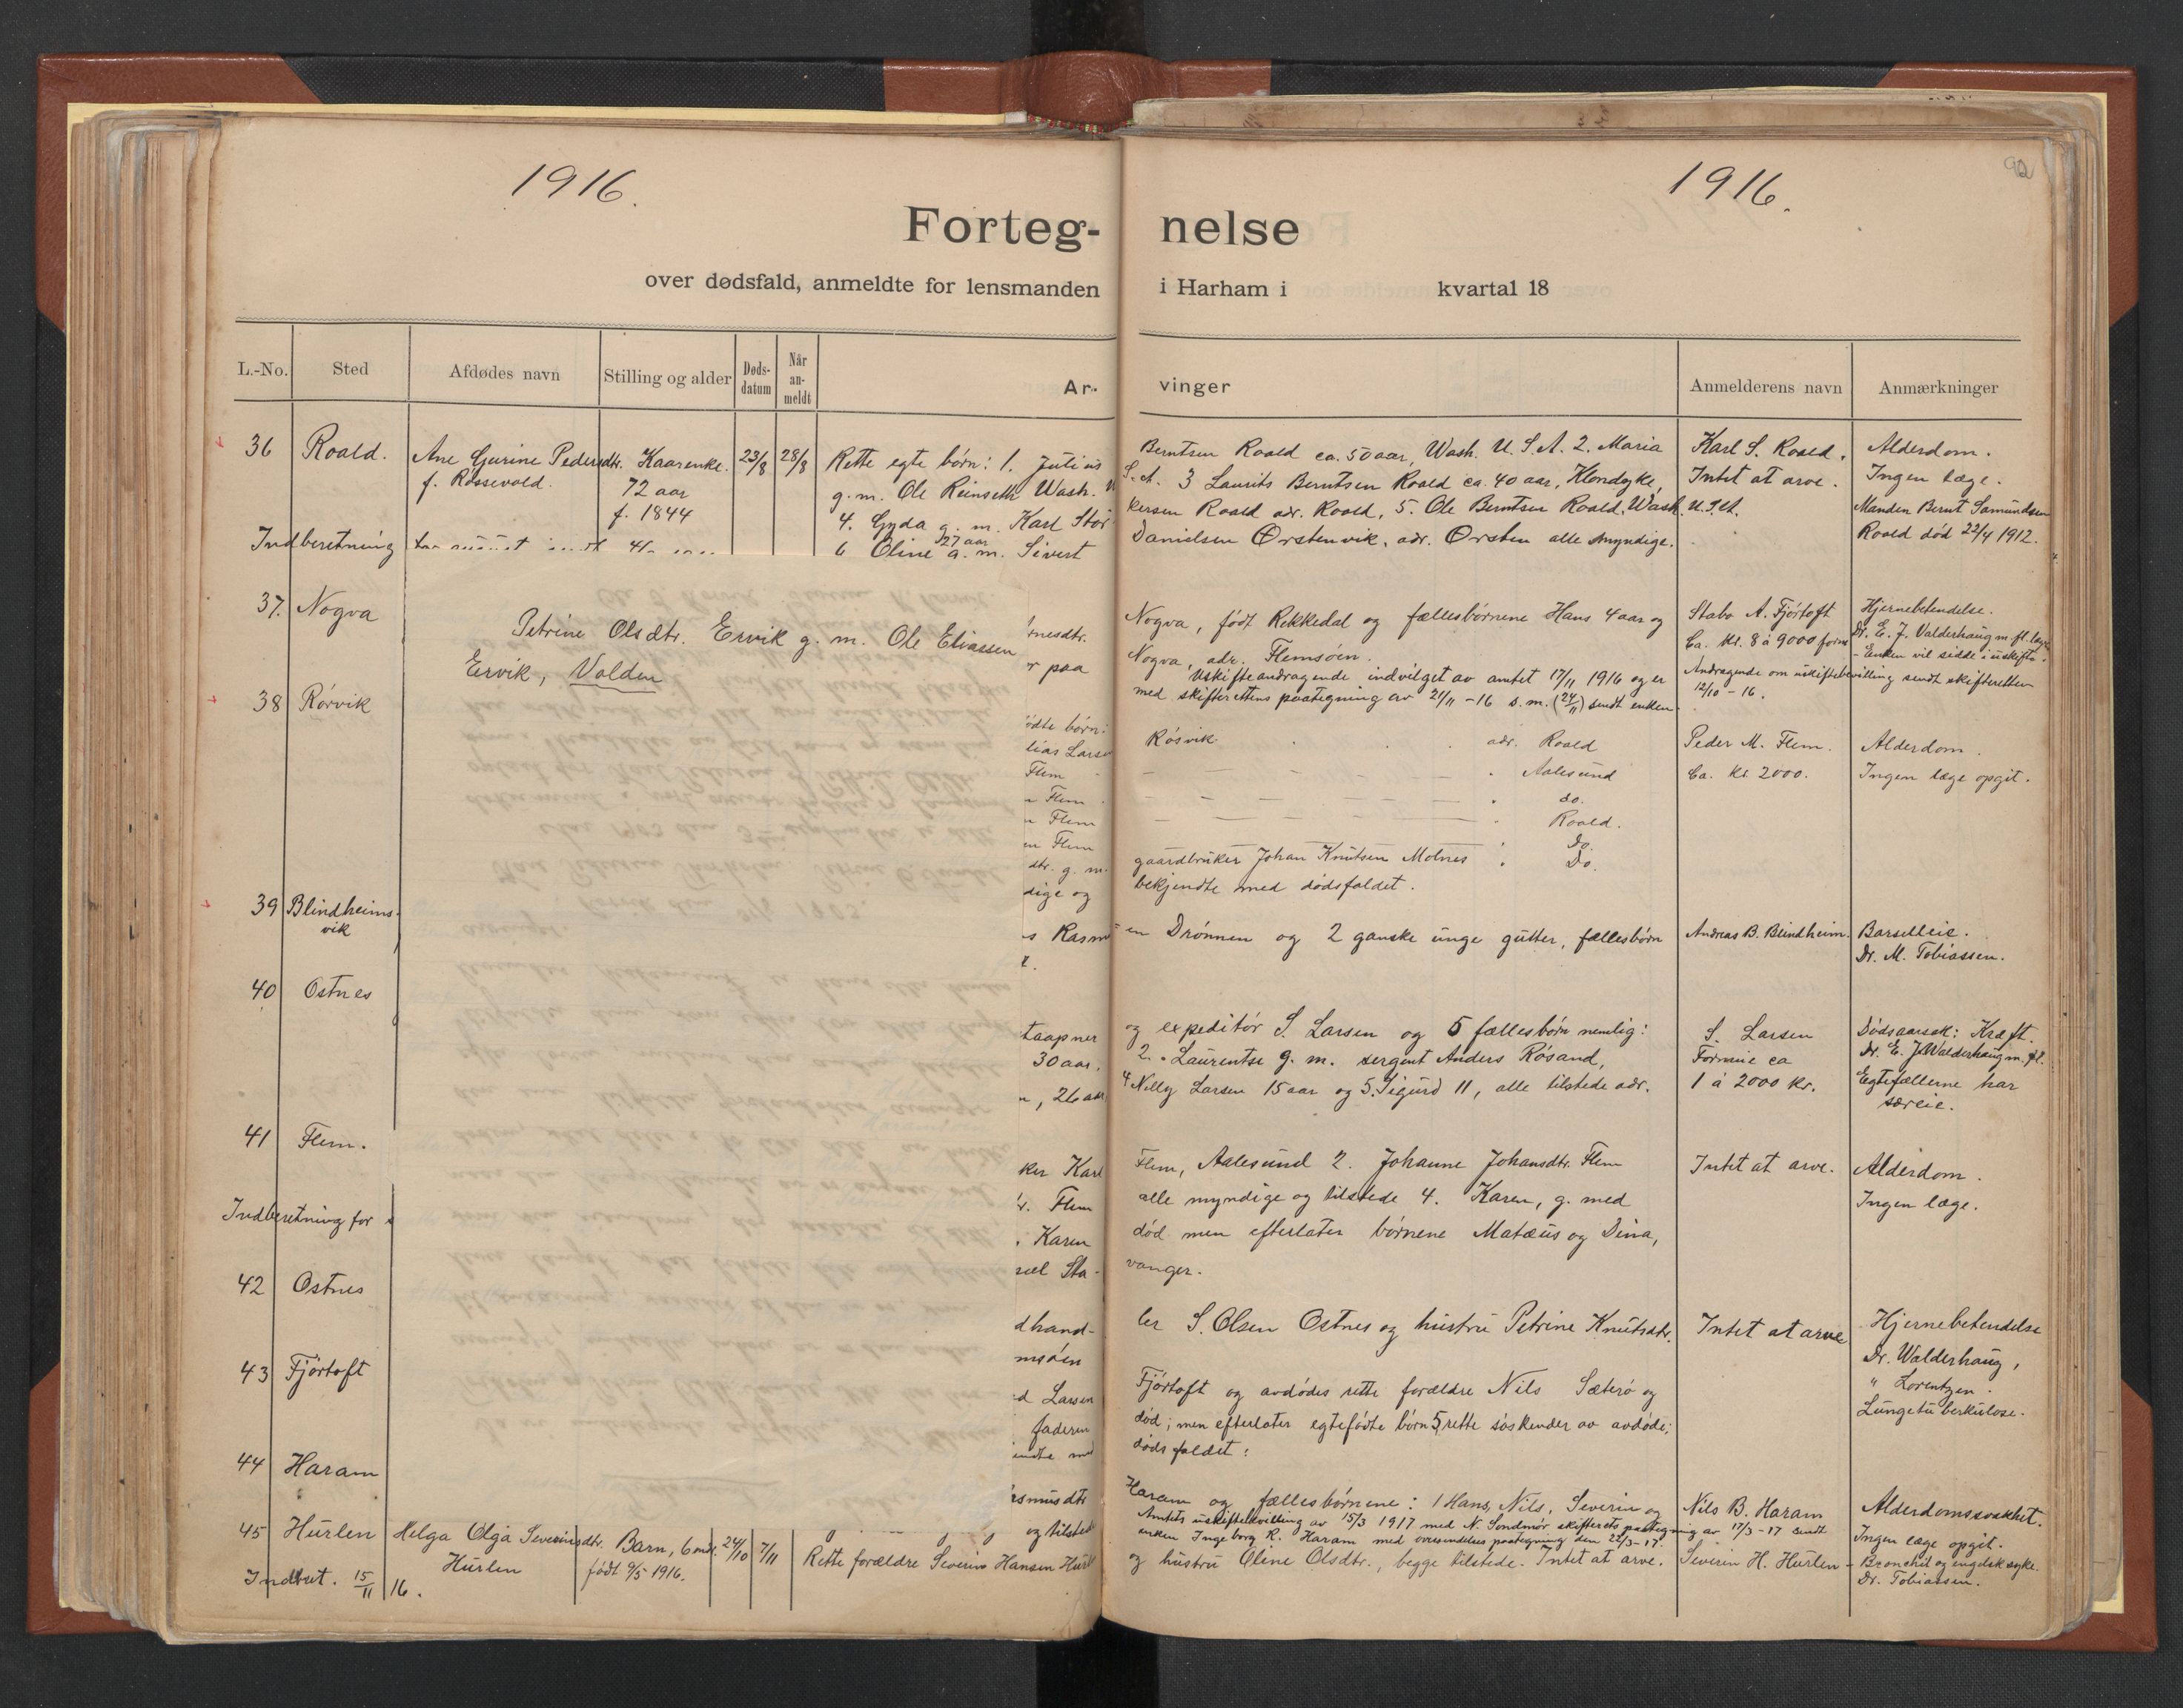 1916.
1916.
92
Forteg-nelse
over dødsfald, anmeldte for lensmanden i Harham i kvartal 18
L.-No. Sted Afdødes navn Stilling og alder Døds-datum Når an-meldt Ar-vinger Anmelderens navn Anmærkninger
36 Roald. Ane Gurine Pedersdtr. Kaarenke. 23/8 28/8 Rette egte børn: 1. Julius Berntsen Roald ca. 50 aar, Wash. U.S.A. 2. Maria Karl S. Roald. Alderdom.
f. Rossevold. 72 aar g. m. Ole Reinseth Wash. U S.A. 3 Laurits Berntsen Roald ca. 40 aar, Klondyke, Intet at arve. Ingen læge.
f. 1844 4. Gyda g. m. Karl Stor kersen Roald adr. Roald, 5. Ole Berntsen Roald, Wash. U.S.A. Manden Bernt Samundsen
27 aar
Indberetning 6 Oline g. m. Sivert Danielsen Ørstenvik, adr. Ørsten alle myndige. Roald død 22/4 1912.
37. Nogva Nogva, født Rekkedal og fællesbørnene Hans 4 aar og Stabo A. Fjørtoft Hjernebetendelse.
Petrine Olsdtr. Ervik g. m. Ole Eliassen
Ervik, Volden
nesdtr.
r paa Nogva, adr. Flemsøen. Ca. Kr. 8 à 9000 form Dr. E. J. Valderhaug m. fl. læge
- Enken vil sidde i uskifte.
Uskifteandragende indvilget av amtet 17/11 1916 og er Andragende om uskiftebevilling sendt skifteretten
med skifterettens paategning av 21/11 -16 s. m. (24/11) sendt enken 12/10 - 16.
38 Rørvik
ødte børn:
lias Larsen Røsvik adr. Roald Peder M. Flem. Alderdom.
Flem - - - - Aalesund Ca. Kr. 2000. Ingen læge opgit.
n Flem - - - - do.
n Flem - - - - Roald.
en Flem Do.
dtr. g. m. gaardbruker Johan Knutsen Molnes Do.
dige og bekjendte med dødsfaldet.
39 Blindheims-
vik
s Rasm en Drønnen og 2 ganske unge gutter, fællesbørn Andreas B. Blindheim. Barselleie.
Dr. M. Tobiassen.
40 Ostnes
taapner og expeditør S. Larsen og 5 fællesbørn nemlig: S. Larsen Dødsaarsak: Kræft.
30 aar, 2. Laurentse g. m. sergent Anders Røsand, Formue ca Dr. E. J. Walderhaug m. fl.
n, 26 aar 4 Nelly Larsen 15 aar og 5. Sigurd 11, alle tilstede adr. 1 à 2000 Kr. Egtefællerne har
særeie.
41 Flem.
ker Karl Flem, Aalesund 2. Johanne Johansdtr. Flem Intet at arve. Alderdom.
Flem alle myndige og tilstede 4. Karen, g. med Ingen læge.
Indberetning for
Karen død men efterlater børnene Matæus og Dina,
Sta- vanger.
42 Ostnes
dhand- ler S. Olsen Ostnes og hustru Petrine Knutsdtr. Intet at arve Hjernebetendelse
msøen Dr. Walderhaug,
43 Fjørtoft
d Larsen Fjørtoft og avdødes rette forældre Nils Sæterø og " Lorentzen.
faderen død; men efterlater egtefødte børn 5, rette søskender av avdøde; Lungetuberkulose.
endte med dødsfaldet:
44 Haram
smusdtr Haram og fællesbørnene: 1 Hans, Nils, Severin og Nils B. Haram Alderdomssvakhet.
og tilstede Amtets uskiftebevilling av 15/3 1917 med N. Søndmør skifterets paategning av 17/3-17 sendt Ingen læge opgit.
enken Ingeborg R. Haram med oversendelses paategning den 22/3-17.
45 Hurlen Helga Olga Severinsdtr. Barn, 6 mdr. 24/10 7/11 Rette forældre Severin Hansen Hurlen og hustru Oline Olsdtr., begge tilstede. Intet at arve. Severin H. Hurlen - Bronchit og engelsk syke.
Hurlen født 9/5 1916. Dr. Tobiassen.
Indbret. 15/11 16.